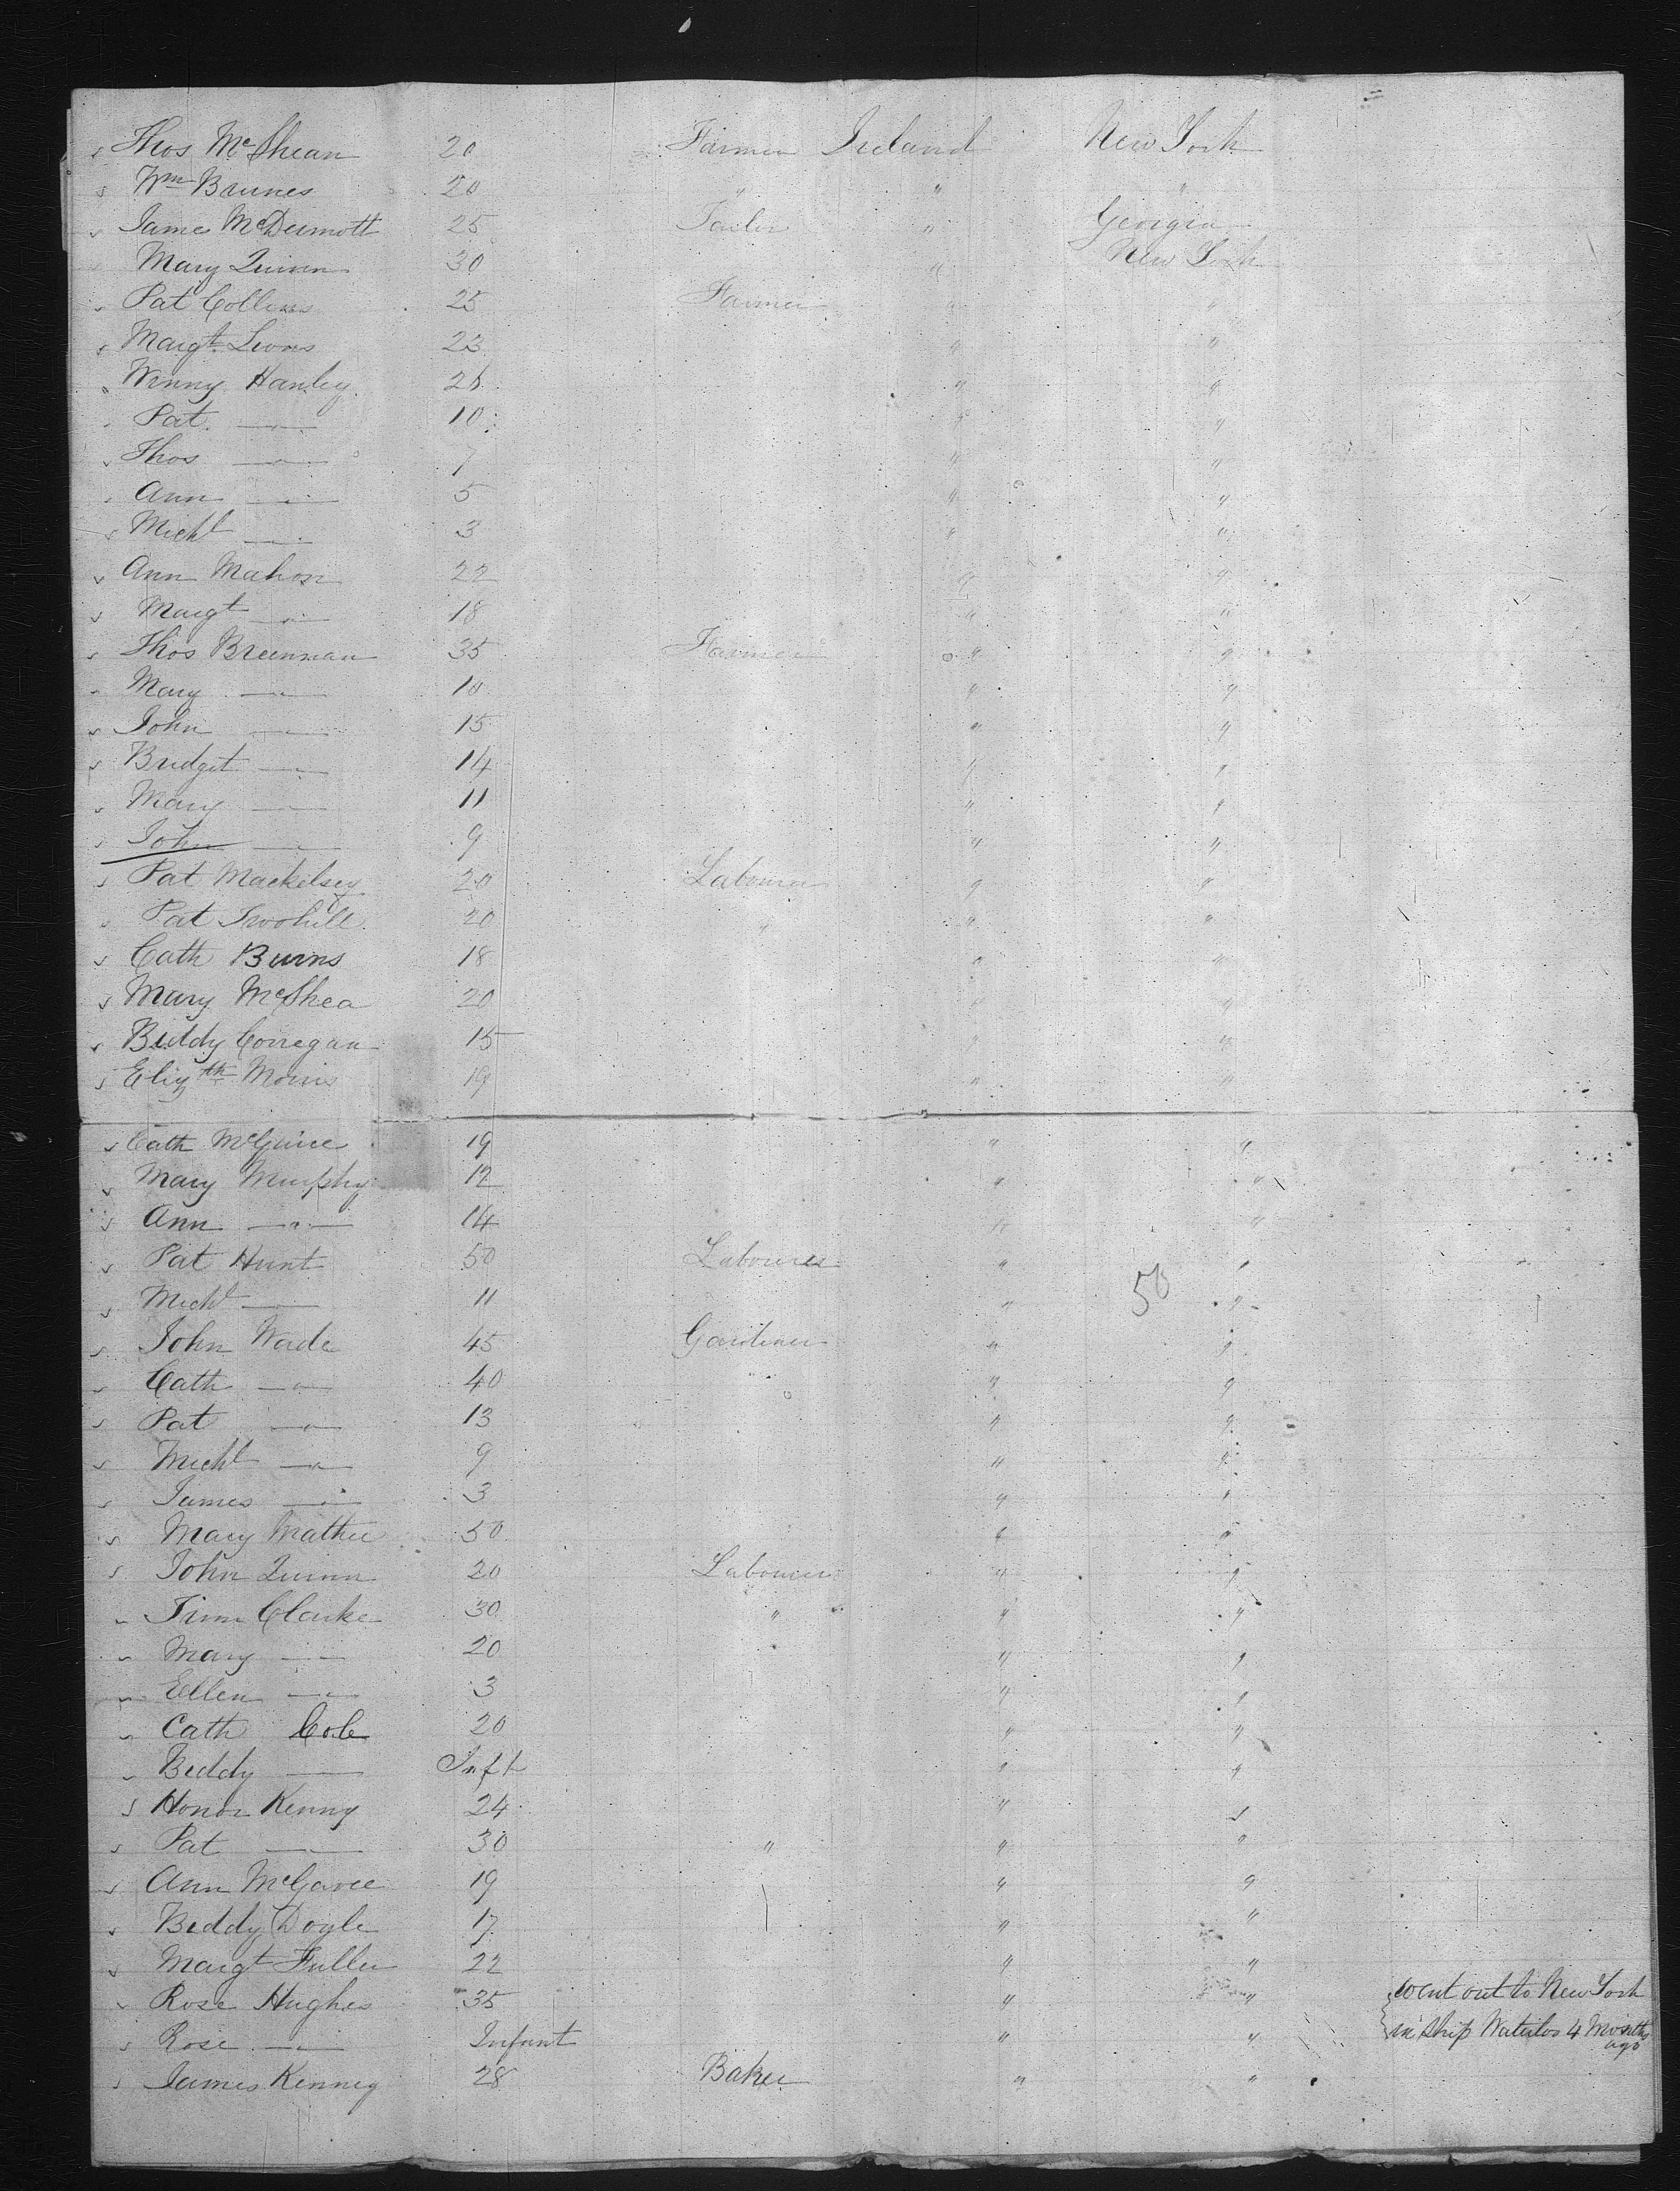 Thos McShean 20 Farmer Ireland New York
Wm Brunes 20 " " "
James McDermott 25 Tailor " Georgia
Mary Quinn 30 " New York
Pat Collins 25 Farmer " "
Margt Lions 23 " "
Winny Hanley 26 " "
Pat —"— 10 " "
Thos —"— 7 " "
Ann —"— 5 " "
Michl —"— 3 " "
Ann Mahon 22 " "
Margt —"— 18 " "
Thos Brennan 35 Farmer " "
Mary —"— 10 " "
John —"— 15 " "
Bridget —"— 14 " "
Mary —"— 11 " "
John —"— 9 " "
Pat Mackelsey 20 Labourer " "
Pat Twohill 20 " " "
Cath Burns 18 " "
Mary McShea 20 " "
Biddy Corregan 15 " "
Elizth Morris 19 " "
Cath McGuire 19 " "
Mary Murphy 12 " "
Ann —"— 14 " "
Pat Hunt 50 Labourer " "
Michl —"— 11 " 50 "
John Wade 45 Gardiner " "
Cath —"— 40 " "
Pat —"— 13 " "
Michl —"— 9 " "
James —"— 3 " "
Mary Mather 50 " "
John Quinn 20 Labourer " "
Timn Clarke 30 " " "
Mary —"— 20 " "
Ellen —"— 3 " "
Cath Cole 20 " "
Biddy —— Inft " "
Honor Kenny 24 " "
Pat —— 30 " " "
Ann McGaree 19 " "
Biddy Doyle 17 " "
Margt Fuller 22 " "
Rose Hughes 35 " " went out to New York
Rose —"— Infant " " in ship Waterloo 4 Months ago
James Kenney 28 Baker " "